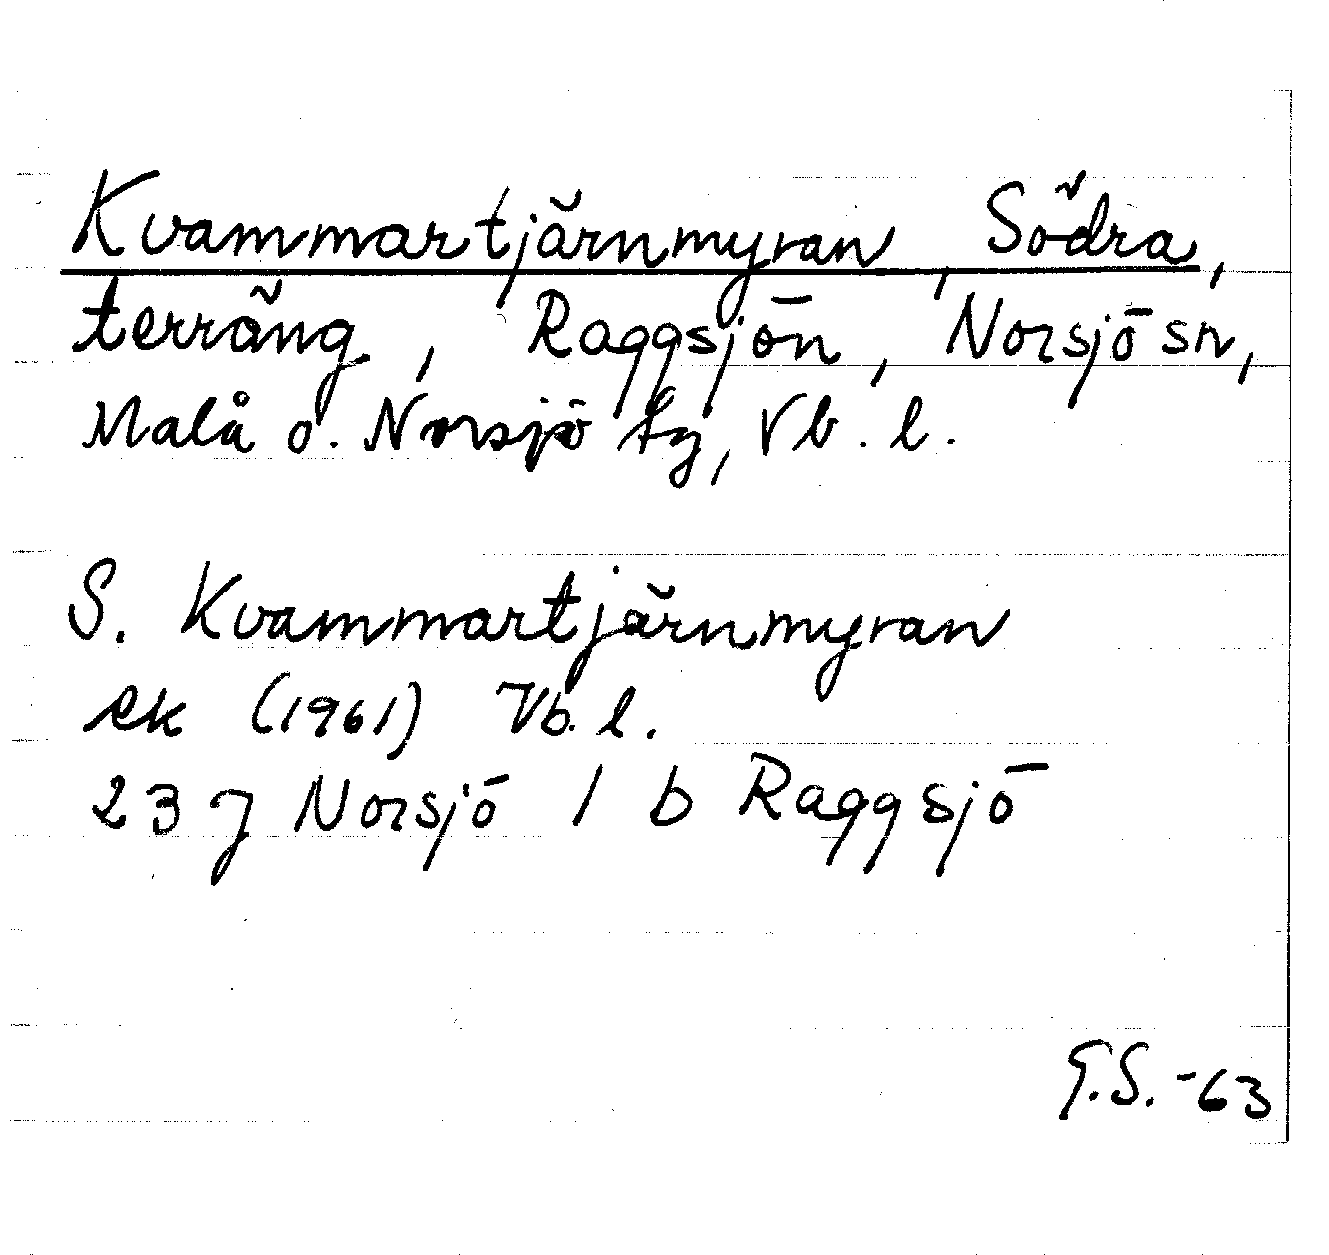 Kvammartjärnmyran, Södra,
terräng, Raggsjön, Norsjö sn,
Malå o. Norsjö tg, Vb. l.
S. Kvammartjärnmyran
ek (1961) Vb. l.
23 J Norsjö 1 b Raggsjö
G.S. -63